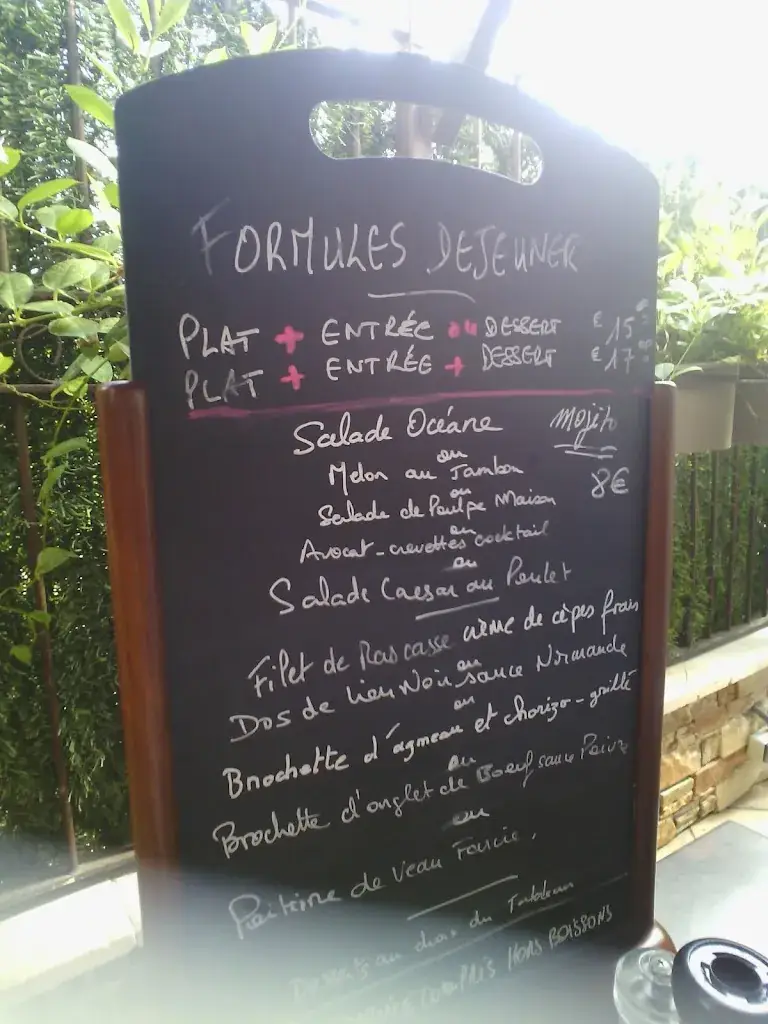 FORMULES DEJEUNER
PLAT + ENTRÉE ou DESSERT € 15
PLAT + ENTRÉE + DESSERT € 17
Salade Océane
Mojito
ou
Melon au Jambon
8€
ou
Salade de Poulpe Maison
ou
Avocat-crevettes cocktail
ou
Salade Caesar au Poulet
Filet de Rascasse crème de cèpes frais
ou
Dos de Lieu Noir sauce Normande
ou
Brochette d'agneau et chorizo-grillé
ou
Brochette d'onglet de Boeuf sauce Poivre
ou
Poitrine de Veau Farcie.
Desserts au choix du Tableau
COMPRIS HORS BOISSONS